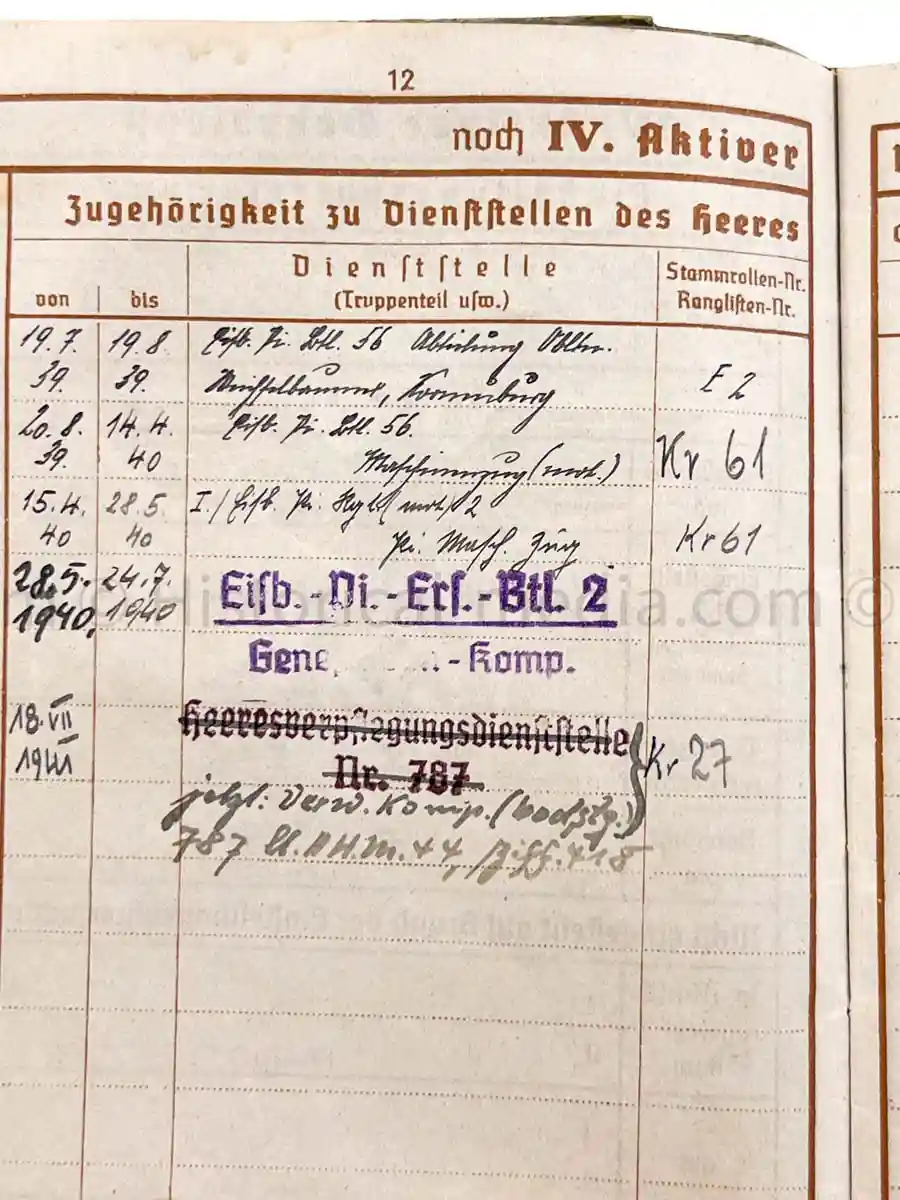 12
noch IV. Aktiver
Zugehörigkeit zu Dienststellen des Heeres
von bis
Dienststelle
(Truppenteil usw.)
Stammrollen-Nr.
Ranglisten-Nr.
19.7. 19.8. Eisb. Pi. Btl. 56 Abteilung
39. 39. Korneuburg E 2
20.8. 14.4. Eisb. Pi. Btl. 56.
39. 40 Maschinenzug (mot.) Kr 61
15.4. 28.5. I./Eisb. Pi. Rgt. (mot) 2
40 40 Pi. Masch. Zug Kr 61
28.5. 24.7. Eisb.-Pi.-Ers.-Btl. 2
1940. 1940
Komp.
18.VII
1941
Heeresverpflegungsdienststelle
Nr. 787
Kr 27
jetzt: Verw. Komp.
787 H.M. 44, Ziff. 418